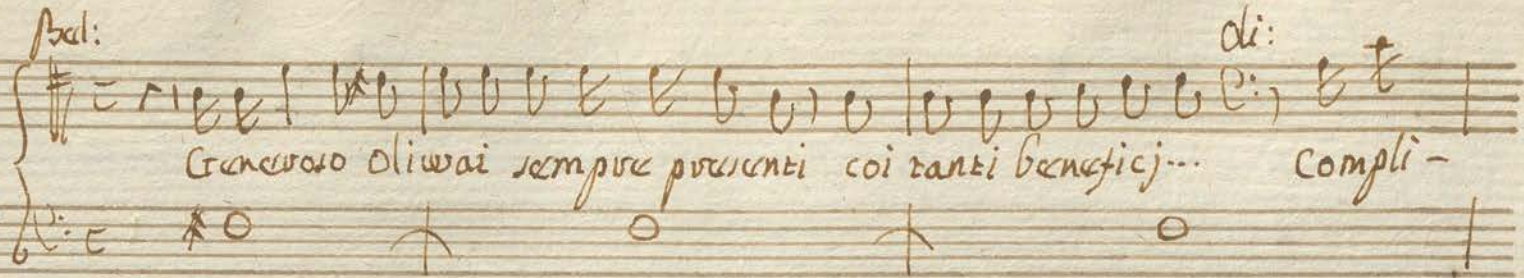 Bel: Oli:
Generoso Oliwai sempre presenti coi tanti beneficj... Compli-